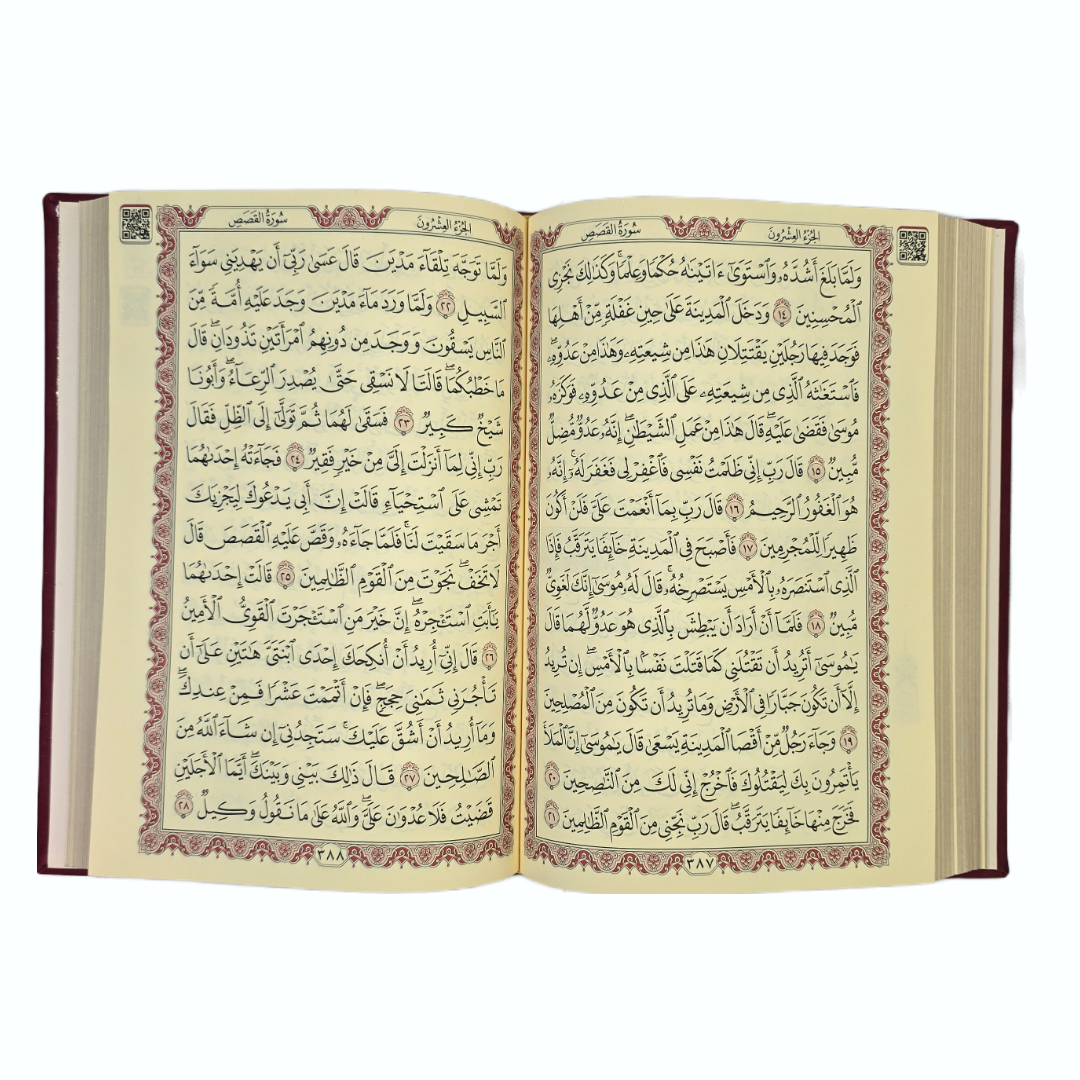 الجُزْءُ العِشْرُونَ
سُورَةُ القَصَصِ
وَلَمَّا بَلَغَ أَشُدَّهُۥ وَٱسْتَوَىٰٓ ءَاتَيْنَٰهُ حُكْمًا وَعِلْمًاۚ وَكَذَٰلِكَ نَجْزِى
ٱلْمُحْسِنِينَ ١٤ وَدَخَلَ ٱلْمَدِينَةَ عَلَىٰ حِينِ غَفْلَةٍ مِّنْ أَهْلِهَا
فَوَجَدَ فِيهَا رَجُلَيْنِ يَقْتَتِلَانِ هَٰذَا مِن شِيعَتِهِۦ وَهَٰذَا مِنْ عَدُوِّهِۦۖ
فَٱسْتَغَٰثَهُ ٱلَّذِى مِن شِيعَتِهِۦ عَلَى ٱلَّذِى مِنْ عَدُوِّهِۦ فَوَكَزَهُۥ
مُوسَىٰ فَقَضَىٰ عَلَيْهِۖ قَالَ هَٰذَا مِنْ عَمَلِ ٱلشَّيْطَٰنِۖ إِنَّهُۥ عَدُوٌّ مُّضِلٌّ
مُّبِينٌ ١٥ قَالَ رَبِّ إِنِّى ظَلَمْتُ نَفْسِى فَٱغْفِرْ لِى فَغَفَرَ لَهُۥٓۚ إِنَّهُۥ
هُوَ ٱلْغَفُورُ ٱلرَّحِيمُ ١٦ قَالَ رَبِّ بِمَآ أَنْعَمْتَ عَلَىَّ فَلَنْ أَكُونَ
ظَهِيرًا لِّلْمُجْرِمِينَ ١٧ فَأَصْبَحَ فِى ٱلْمَدِينَةِ خَآئِفًا يَتَرَقَّبُ فَإِذَا
ٱلَّذِى ٱسْتَنصَرَهُۥ بِٱلْأَمْسِ يَسْتَصْرِخُهُۥۚ قَالَ لَهُۥ مُوسَىٰٓ إِنَّكَ لَغَوِىٌّ
مُّبِينٌ ١٨ فَلَمَّآ أَنْ أَرَادَ أَن يَبْطِشَ بِٱلَّذِى هُوَ عَدُوٌّ لَّهُمَا قَالَ
يَٰمُوسَىٰٓ أَتُرِيدُ أَن تَقْتُلَنِى كَمَا قَتَلْتَ نَفْسًۢا بِٱلْأَمْسِۖ إِن تُرِيدُ
إِلَّآ أَن تَكُونَ جَبَّارًا فِى ٱلْأَرْضِ وَمَا تُرِيدُ أَن تَكُونَ مِنَ ٱلْمُصْلِحِينَ
١٩ وَجَآءَ رَجُلٌ مِّنْ أَقْصَا ٱلْمَدِينَةِ يَسْعَىٰ قَالَ يَٰمُوسَىٰٓ إِنَّ ٱلْمَلَأَ
يَأْتَمِرُونَ بِكَ لِيَقْتُلُوكَ فَٱخْرُجْ إِنِّى لَكَ مِنَ ٱلنَّٰصِحِينَ ٢٠
فَخَرَجَ مِنْهَا خَآئِفًا يَتَرَقَّبُۖ قَالَ رَبِّ نَجِّنِى مِنَ ٱلْقَوْمِ ٱلظَّٰلِمِينَ ٢١
٣٨٧
الجُزْءُ العِشْرُونَ
سُورَةُ القَصَصِ
وَلَمَّا تَوَجَّهَ تِلْقَآءَ مَدْيَنَ قَالَ عَسَىٰ رَبِّىٓ أَن يَهْدِيَنِى سَوَآءَ
ٱلسَّبِيلِ ٢٢ وَلَمَّا وَرَدَ مَآءَ مَدْيَنَ وَجَدَ عَلَيْهِ أُمَّةً مِّنَ
ٱلنَّاسِ يَسْقُونَ وَوَجَدَ مِن دُونِهِمُ ٱمْرَأَتَيْنِ تَذُودَانِۖ قَالَ
مَا خَطْبُكُمَاۖ قَالَتَا لَا نَسْقِى حَتَّىٰ يُصْدِرَ ٱلرِّعَآءُۖ وَأَبُونَا
شَيْخٌ كَبِيرٌ ٢٣ فَسَقَىٰ لَهُمَا ثُمَّ تَوَلَّىٰٓ إِلَى ٱلظِّلِّ فَقَالَ
رَبِّ إِنِّى لِمَآ أَنزَلْتَ إِلَىَّ مِنْ خَيْرٍ فَقِيرٌ ٢٤ فَجَآءَتْهُ إِحْدَىٰهُمَا
تَمْشِى عَلَى ٱسْتِحْيَآءٍ قَالَتْ إِنَّ أَبِى يَدْعُوكَ لِيَجْزِيَكَ
أَجْرَ مَا سَقَيْتَ لَنَاۚ فَلَمَّا جَآءَهُۥ وَقَصَّ عَلَيْهِ ٱلْقَصَصَ قَالَ
لَا تَخَفْۖ نَجَوْتَ مِنَ ٱلْقَوْمِ ٱلظَّٰلِمِينَ ٢٥ قَالَتْ إِحْدَىٰهُمَا
يَٰٓأَبَتِ ٱسْتَـْٔجِرْهُۖ إِنَّ خَيْرَ مَنِ ٱسْتَـْٔجَرْتَ ٱلْقَوِىُّ ٱلْأَمِينُ
٢٦ قَالَ إِنِّىٓ أُرِيدُ أَنْ أُنكِحَكَ إِحْدَى ٱبْنَتَىَّ هَٰتَيْنِ عَلَىٰٓ أَن
تَأْجُرَنِى ثَمَٰنِىَ حِجَجٍۖ فَإِنْ أَتْمَمْتَ عَشْرًا فَمِنْ عِندِكَۖ
وَمَآ أُرِيدُ أَنْ أَشُقَّ عَلَيْكَۚ سَتَجِدُنِىٓ إِن شَآءَ ٱللَّهُ مِنَ
ٱلصَّٰلِحِينَ ٢٧ قَالَ ذَٰلِكَ بَيْنِى وَبَيْنَكَۖ أَيَّمَا ٱلْأَجَلَيْنِ
قَضَيْتُ فَلَا عُدْوَٰنَ عَلَىَّۖ وَٱللَّهُ عَلَىٰ مَا نَقُولُ وَكِيلٌ ٢٨
٣٨٨